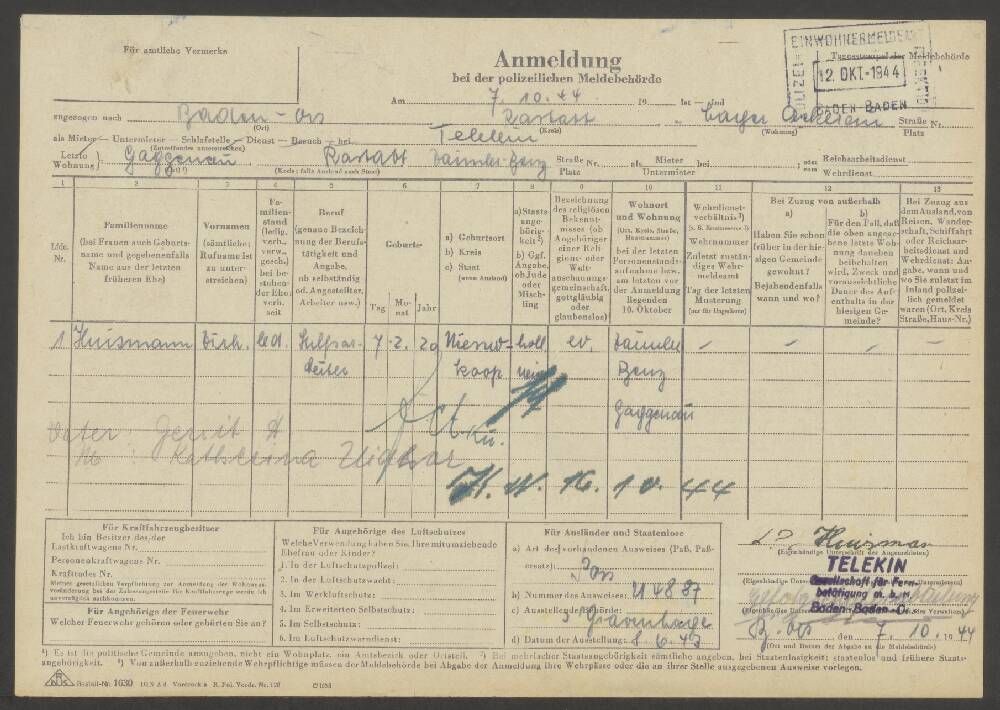 Für amtliche Vermerke
Anmeldung
bei der polizeilichen Meldebehörde
EINWOHNERMELDE
POLIZEI
12. OKT. 1944
BADEN-BADEN
Tagesstempel der Meldebehörde
Am 7. 10. 44 19 ist — sind
zugezogen nach Baden-Oos Rastatt Lager Straße Nr.
(Ort) (Kreis) (Wohnung) Platz
als Mieter — Untermieter — Schlafstelle — Dienst — Besuch — bei Telekin
(Zutreffendes unterstreichen)
Letzte Wohnung Gaggenau Rastatt Daimler-Benz Straße Nr. Platz als Mieter Untermieter bei ; oder vom Reichsarbeitsdienst Wehrdienst
(Ort) (Kreis; falls Ausland auch Staat)
1 2 3 4 5 6 7 8 9 10 11 12 13
Lfde. Nr.
Familienname (bei Frauen auch Geburtsname und gegebenenfalls Name aus der letzten früheren Ehe)
Vornamen (sämtliche; Rufname ist zu unterstreichen)
Familienstand (ledig, verh., verw., gesch.) bei bestehender Ehe: verh. seit
Beruf (genaue Bezeichnung der Berufstätigkeit und Angabe, ob selbständig od. Angestellter, Arbeiter usw.)
Geburts-
Tag Monat Jahr
a) Geburtsort b) Kreis c) Staat (wenn Ausland)
a) Staatsangehörigkeit ²) b) Ggf. Angabe, ob Jude oder Mischling
Bezeichnung des religiösen Bekenntnisses (ob Angehöriger einer Religions- oder Weltanschauungsgemeinschaft, gottgläubig oder glaubenslos)
Wohnort und Wohnung (Ort, Kreis, Straße, Hausnummer) bei der letzten Personenstandsaufnahme bzw. am letzten vor der Anmeldung liegenden 10. Oktober
Wehrdienstverhältnis ³) (z. B. Ersatzreserve I) Wehrnummer Zuletzt zuständiges Wehrmeldeamt Tag der letzten Musterung (nur für Ungediente)
Bei Zuzug von außerhalb
a) Haben Sie schon früher in der hiesigen Gemeinde gewohnt? Bejahendenfalls wann und wo?
b) Für den Fall, daß die oben angegebene letzte Wohnung daneben beibehalten wird, Zweck und voraussichtliche Dauer des Aufenthalts in der hiesigen Gemeinde?
Bei Zuzug aus dem Ausland, von Reisen, Wanderschaft, Schiffahrt oder Reichsarbeitsdienst und Wehrdienst: Angabe, wann und wo Sie zuletzt im Inland polizeilich gemeldet waren (Ort, Kreis Straße, Haus-Nr.)
1 Huismann Dirk led. Hilfsar- 7. 2. 20 Nieuw- holl ev. Daimler – – – –
beiter koop nein Benz
Gaggenau
Vater: Gerrit H
M : Katherina
16. 10. 44
Für Kraftfahrzeugbesitzer
Ich bin Besitzer des/der
Lastkraftwagens Nr.
Personenkraftwagens Nr.
Kraftrades Nr.
Meiner gesetzlichen Verpflichtung zur Anmeldung der Wohnungsveränderung bei der Zulassungsstelle für Kraftfahrzeuge werde ich unverzüglich nachkommen.
Für Angehörige der Feuerwehr
Welcher Feuerwehr gehören oder gehörten Sie an?
Für Angehörige des Luftschutzes
Welche Verwendung haben Sie, Ihre mitumziehende Ehefrau oder Kinder?
1. In der Luftschutzpolizei:
2. In der Luftschutzwacht:
3. Im Werkluftschutz:
4. Im Erweiterten Selbstschutz:
5. Im Selbstschutz:
6. Im Luftschutzwarndienst:
Für Ausländer und Staatenlose
a) Art des vorhandenen Ausweises (Paß, Paßersatz): Pass
b) Nummer des Ausweises: 44887
c) Ausstellende Behörde: s'Gravenhage
d) Datum der Ausstellung: 8. 6. 43
D Huisman
(Eigenhändige Unterschrift des Anmeldenden)
TELEKIN
Gesellschaft für Fern-
betätigung m. b. H.
Baden-Baden-O.
B. Oos den 7. 10. 1944
(Ort und Datum der Abgabe an die Meldebehörde)
¹) Es ist die politische Gemeinde anzugeben, nicht ein Wohnplatz, ein Amtsbezirk oder Ortsteil. ²) Bei mehrfacher Staatsangehörigkeit sämtliche angeben, bei Staatenlosigkeit: staatenlos und frühere Staatsangehörigkeit. ³) Von außerhalb zuziehende Wehrpflichtige müssen der Meldebehörde bei Abgabe der Anmeldung ihre Wehrpässe oder die an ihrer Stelle ausgegebenen Ausweise vorlegen.
Bestell-Nr. 1630